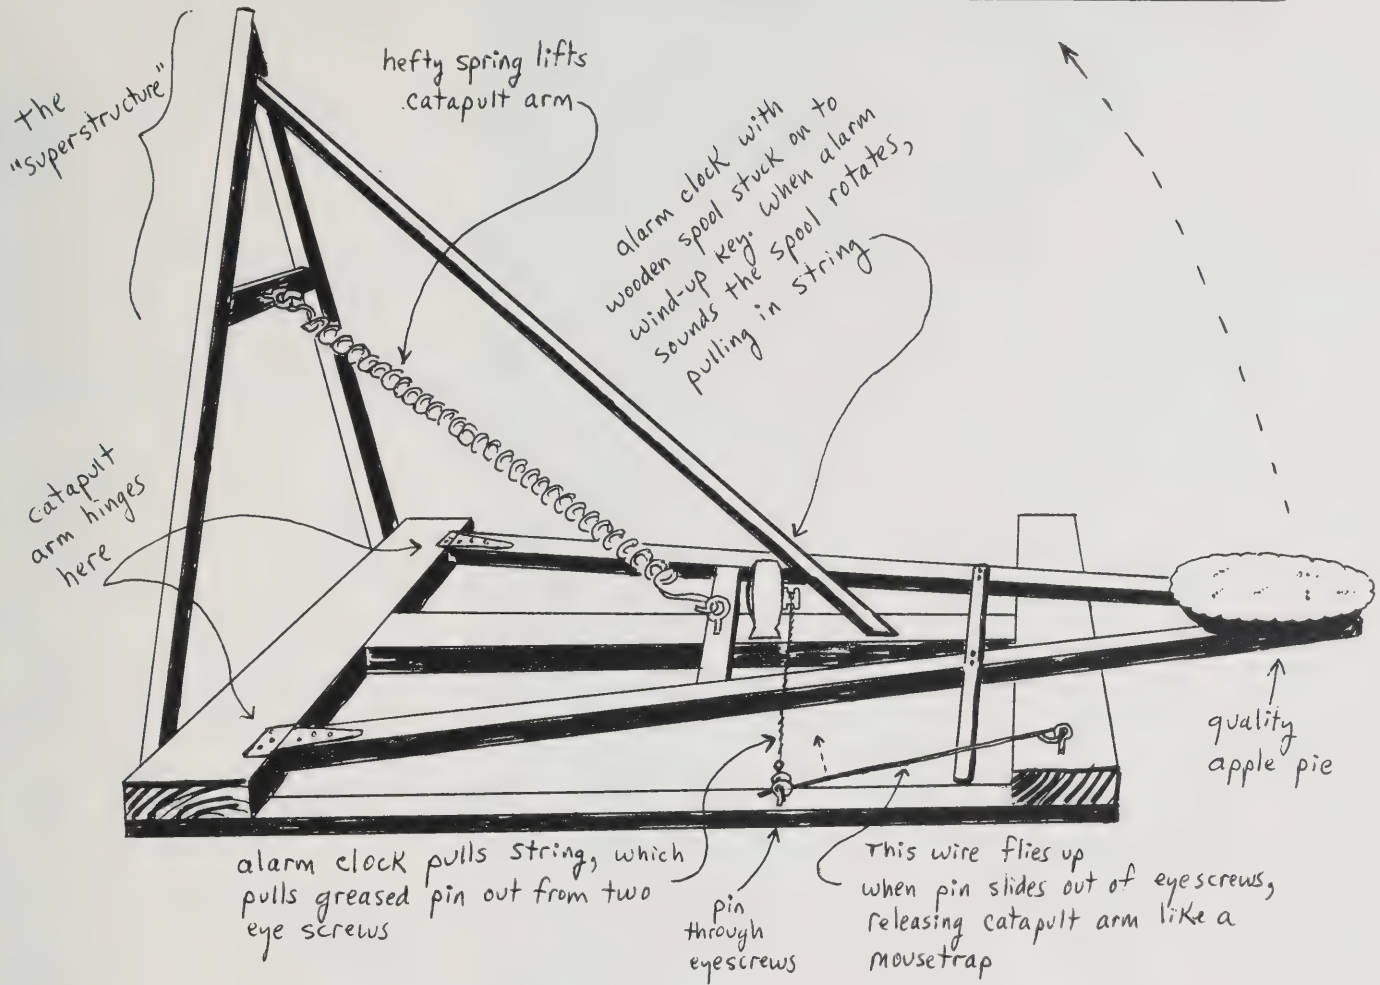 the
"superstructure"
hefty spring lifts
catapult arm
alarm clock with
wooden spool stuck on to
wind-up key. when alarm
sounds the spool rotates,
pulling in string
catapult
arm hinges
here
quality
apple pie
alarm clock pulls string, which
pulls greased pin out from two
eye screws
pin
through
eyescrews
This wire flies up
when pin slides out of eyescrews,
releasing catapult arm like a
mousetrap